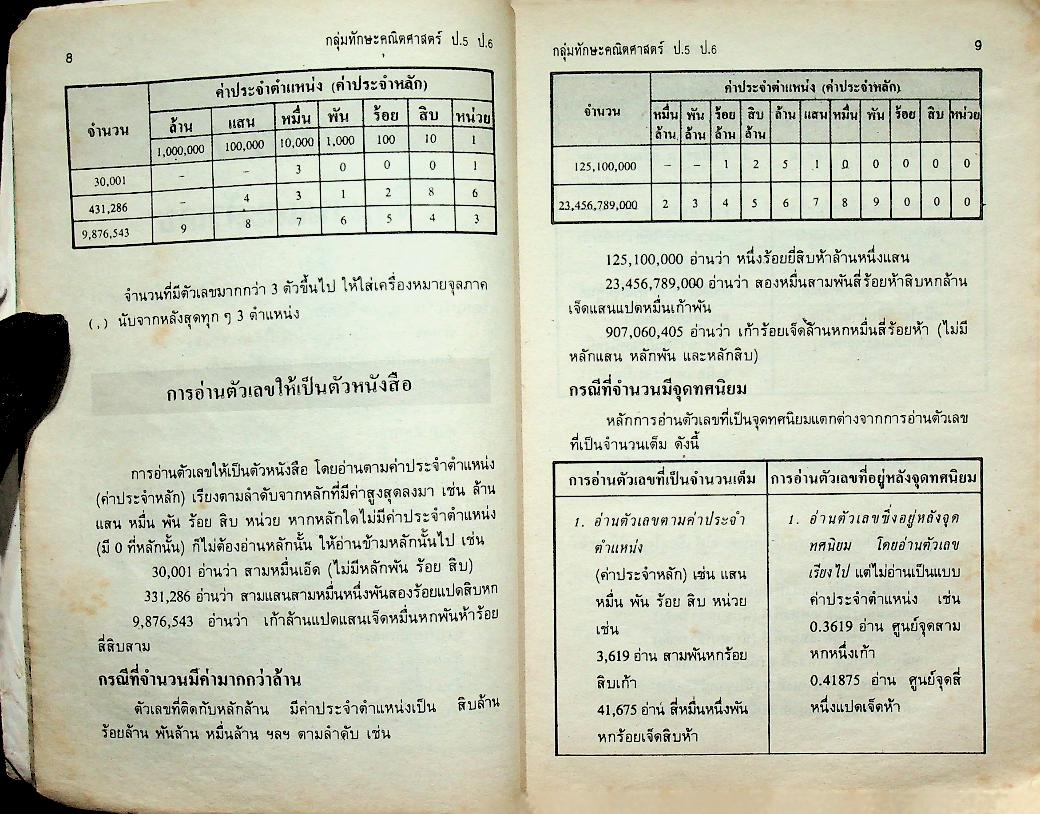 8
กลุ่มทักษะคณิตศาสตร์ ป.5 ป.6
จำนวน ค่าประจำตำแหน่ง (ค่าประจำหลัก)
ล้าน แสน หมื่น พัน ร้อย สิบ หน่วย
1,000,000 100,000 10,000 1,000 100 10 1
30,001 – – 3 0 0 0 1
431,286 – 4 3 1 2 8 6
9,876,543 9 8 7 6 5 4 3
จำนวนที่มีตัวเลขมากกว่า 3 ตัวขึ้นไป ให้ใส่เครื่องหมายจุลภาค
(,) นับจากหลังสุดทุก ๆ 3 ตำแหน่ง
การอ่านตัวเลขให้เป็นตัวหนังสือ
การอ่านตัวเลขให้เป็นตัวหนังสือ โดยอ่านตามค่าประจำตำแหน่ง
(ค่าประจำหลัก) เรียงตามลำดับจากหลักที่มีค่าสูงสุดลงมา เช่น ล้าน
แสน หมื่น พัน ร้อย สิบ หน่วย หากหลักใดไม่มีค่าประจำตำแหน่ง
(มี 0 ที่หลักนั้น) ก็ไม่ต้องอ่านหลักนั้น ให้อ่านข้ามหลักนั้นไป เช่น
30,001 อ่านว่า สามหมื่นเอ็ด (ไม่มีหลักพัน ร้อย สิบ)
331,286 อ่านว่า สามแสนสามหมื่นหนึ่งพันสองร้อยแปดสิบหก
9,876,543 อ่านว่า เก้าล้านแปดแสนเจ็ดหมื่นหกพันห้าร้อย
สี่สิบสาม
กรณีที่จำนวนมีค่ามากกว่าล้าน
ตัวเลขที่ติดกับหลักล้าน มีค่าประจำตำแหน่งเป็น สิบล้าน
ร้อยล้าน พันล้าน หมื่นล้าน ฯลฯ ตามลำดับ เช่น
กลุ่มทักษะคณิตศาสตร์ ป.5 ป.6
9
จำนวน ค่าประจำตำแหน่ง (ค่าประจำหลัก)
หมื่น พัน ร้อย สิบ ล้าน แสน หมื่น พัน ร้อย สิบ หน่วย
ล้าน ล้าน ล้าน ล้าน
125,100,000 – – 1 2 5 1 0 0 0 0 0
23,456,789,000 2 3 4 5 6 7 8 9 0 0 0
125,100,000 อ่านว่า หนึ่งร้อยยี่สิบห้าล้านหนึ่งแสน
23,456,789,000 อ่านว่า สองหมื่นสามพันสี่ร้อยห้าสิบหกล้าน
เจ็ดแสนแปดหมื่นเก้าพัน
907,060,405 อ่านว่า เก้าร้อยเจ็ดล้านหกหมื่นสี่ร้อยห้า (ไม่มี
หลักแสน หลักพัน และหลักสิบ)
กรณีที่จำนวนมีจุดทศนิยม
หลักการอ่านตัวเลขที่เป็นจุดทศนิยมแตกต่างจากการอ่านตัวเลข
ที่เป็นจำนวนเต็ม ดังนี้
การอ่านตัวเลขที่เป็นจำนวนเต็ม
1. อ่านตัวเลขตามค่าประจำ
ตำแหน่ง
(ค่าประจำหลัก) เช่น แสน
หมื่น พัน ร้อย สิบ หน่วย
เช่น
3,619 อ่าน สามพันหกร้อย
สิบเก้า
41,675 อ่าน สี่หมื่นหนึ่งพัน
หกร้อยเจ็ดสิบห้า
การอ่านตัวเลขที่อยู่หลังจุดทศนิยม
1. อ่านตัวเลขซึ่งอยู่หลังจุด
ทศนิยม โดยอ่านตัวเลข
เรียงไป แต่ไม่อ่านเป็นแบบ
ค่าประจำตำแหน่ง เช่น
0.3619 อ่าน ศูนย์จุดสาม
หกหนึ่งเก้า
0.41875 อ่าน ศูนย์จุดสี่
หนึ่งแปดเจ็ดห้า